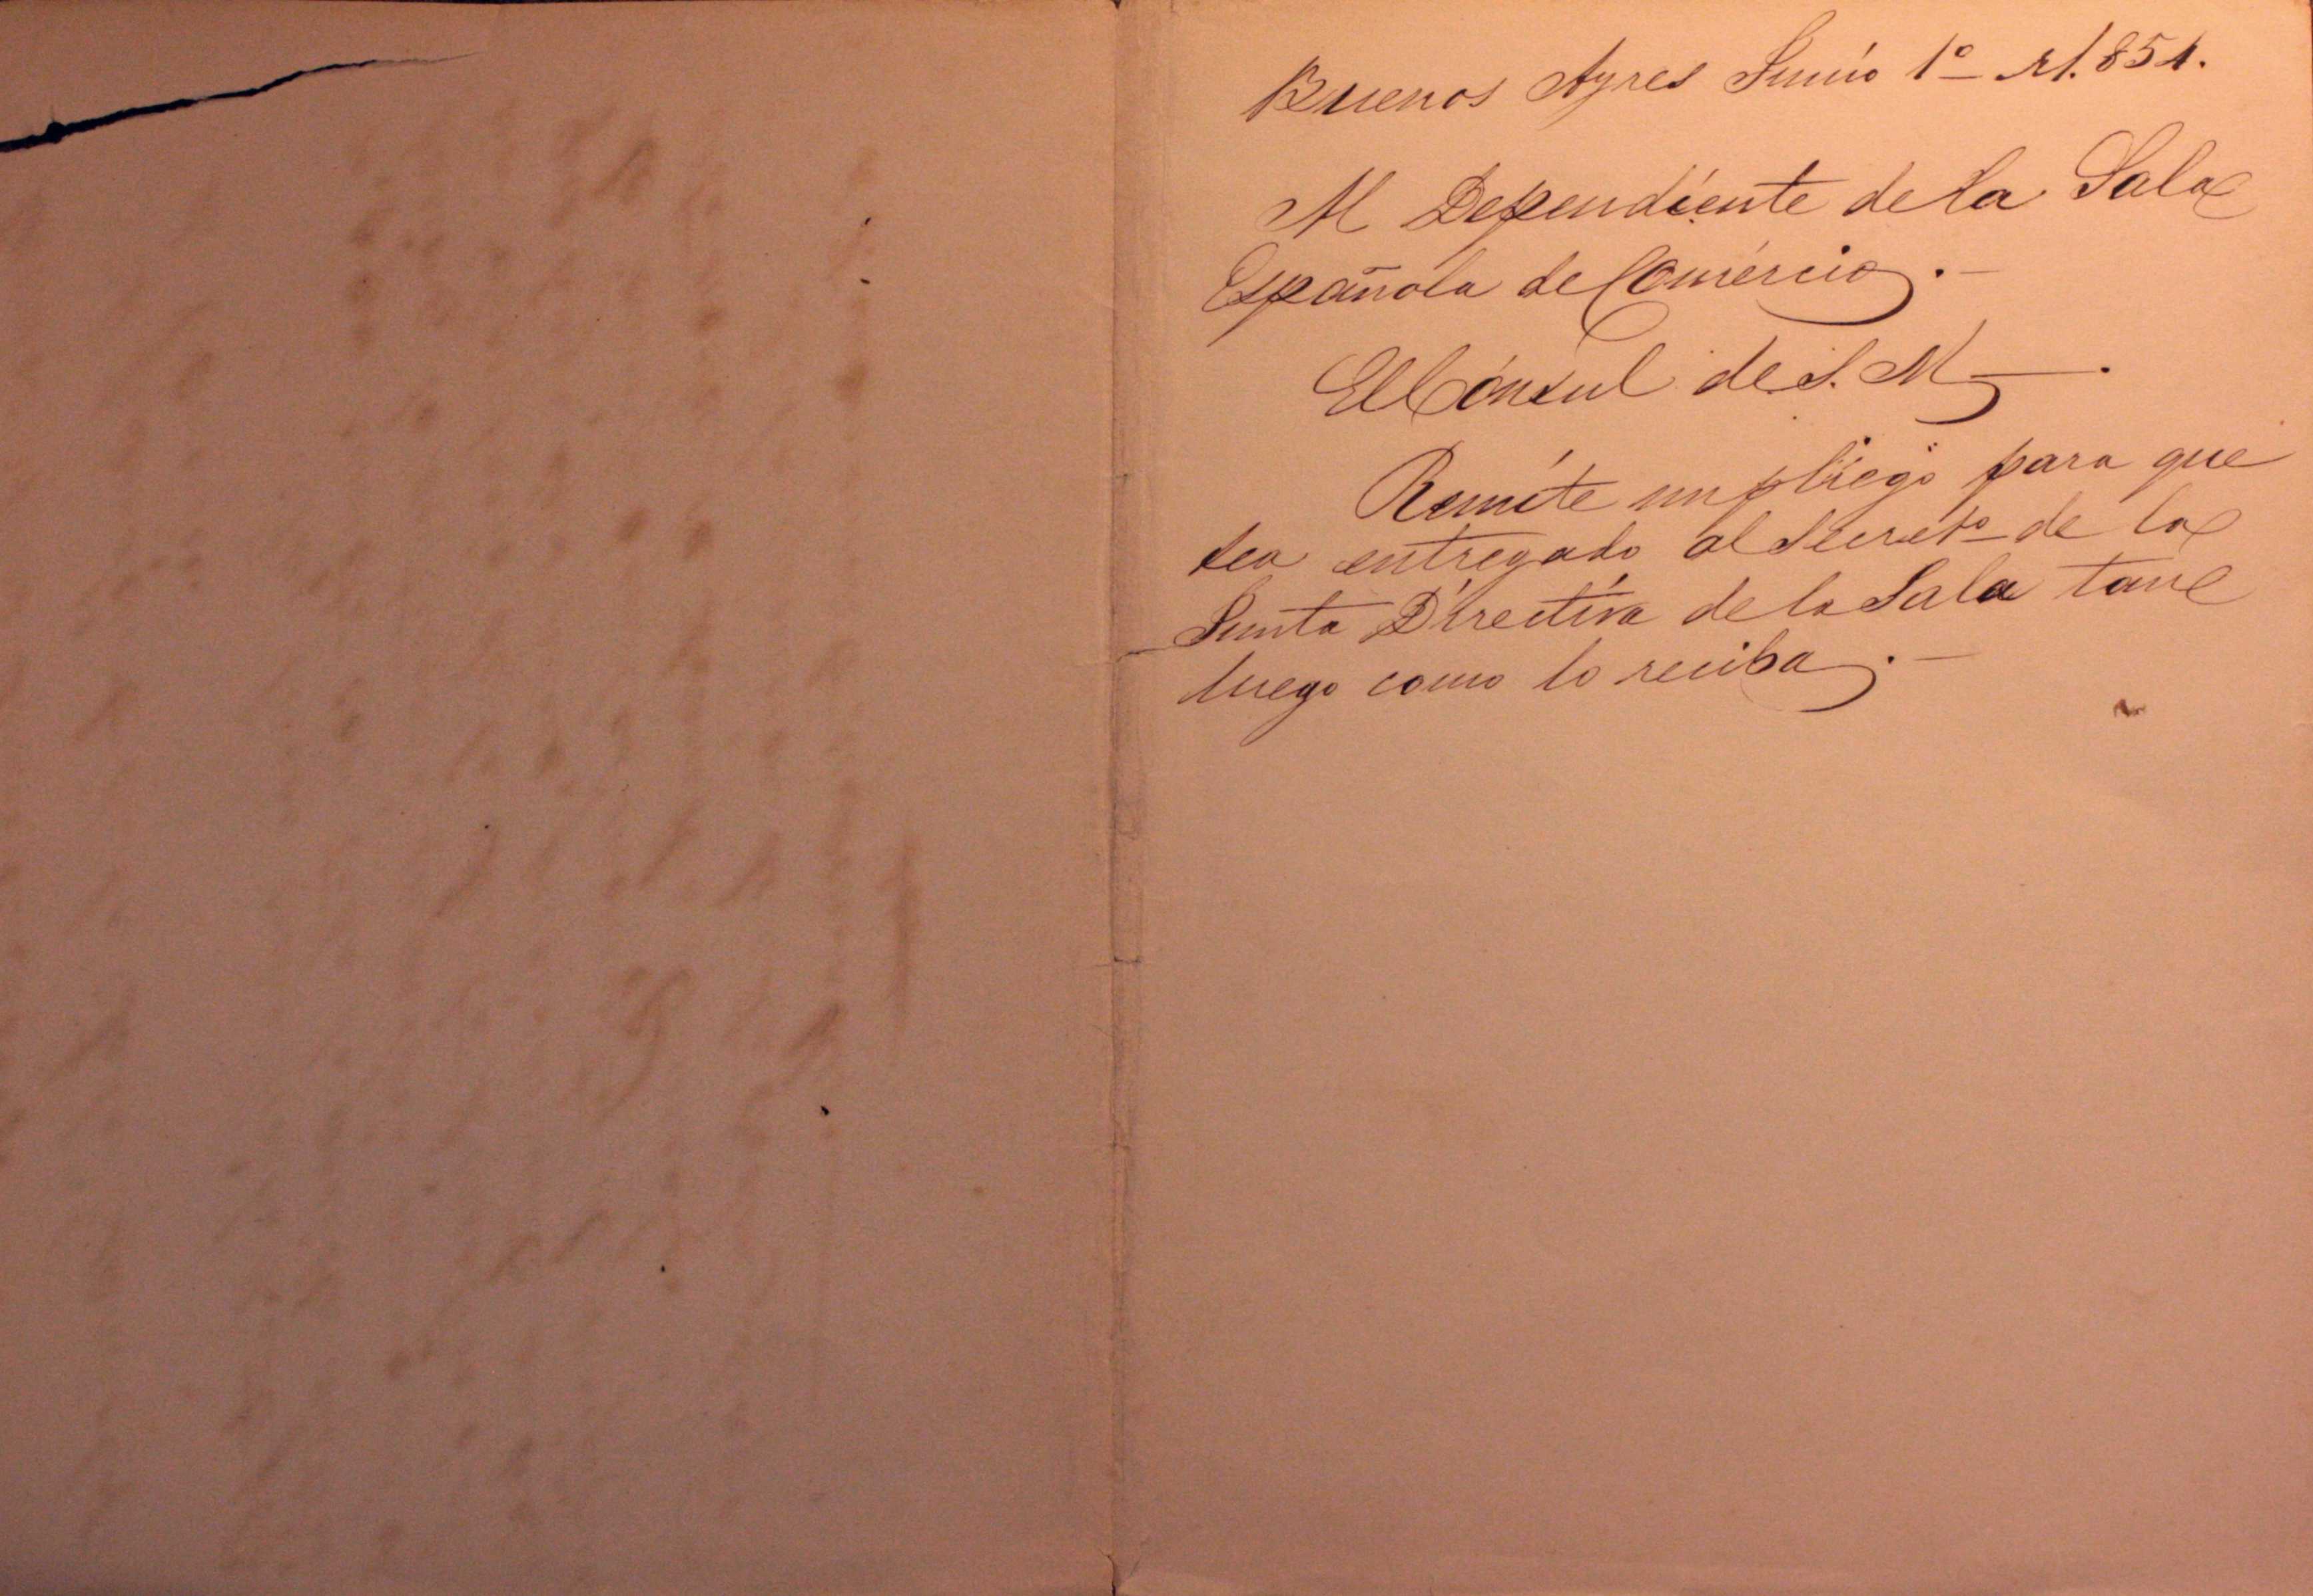 Buenos Ayres Junio 1º 1.854.
Al Dependiente de la Sala
Española de Comercio.—
El Cónsul de S. M.
Remite un pliego para que
sea entregado al Secretº de la
Junta Directiva de la Sala tan
luego como lo reciba.—